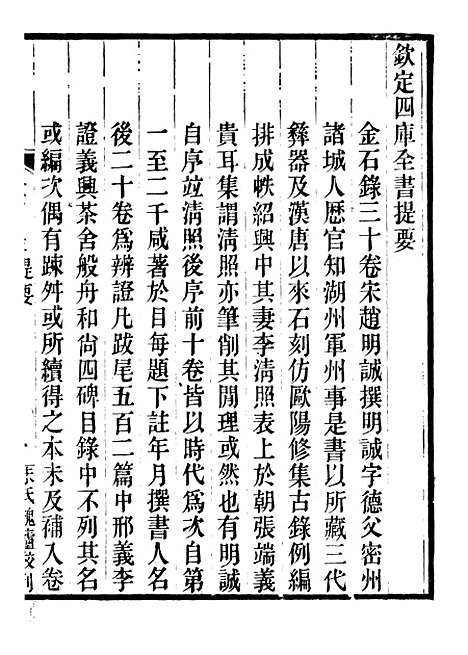 欽定四庫全書提要
金石錄三十卷宋趙明誠撰明誠字德父密州
諸城人歷官知湖州軍州事是書以所藏三代
彝器及漢唐以來石刻仿歐陽修集古錄例編
排成帙紹興中其妻李清照表上於朝張端義
貴耳集謂清照亦筆削其閒理或然也有明誠
自序竝清照後序前十卷皆以時代為次自第
一至二千咸著於目每題下註年月撰書人名
後二十卷為辨證凡跋尾五百二篇中邢義李
證義興茶舍般舟和尚四碑目錄中不列其名
或編次偶有踈舛或所續得之本未及補入卷
提要
朱氏槐廬校刊